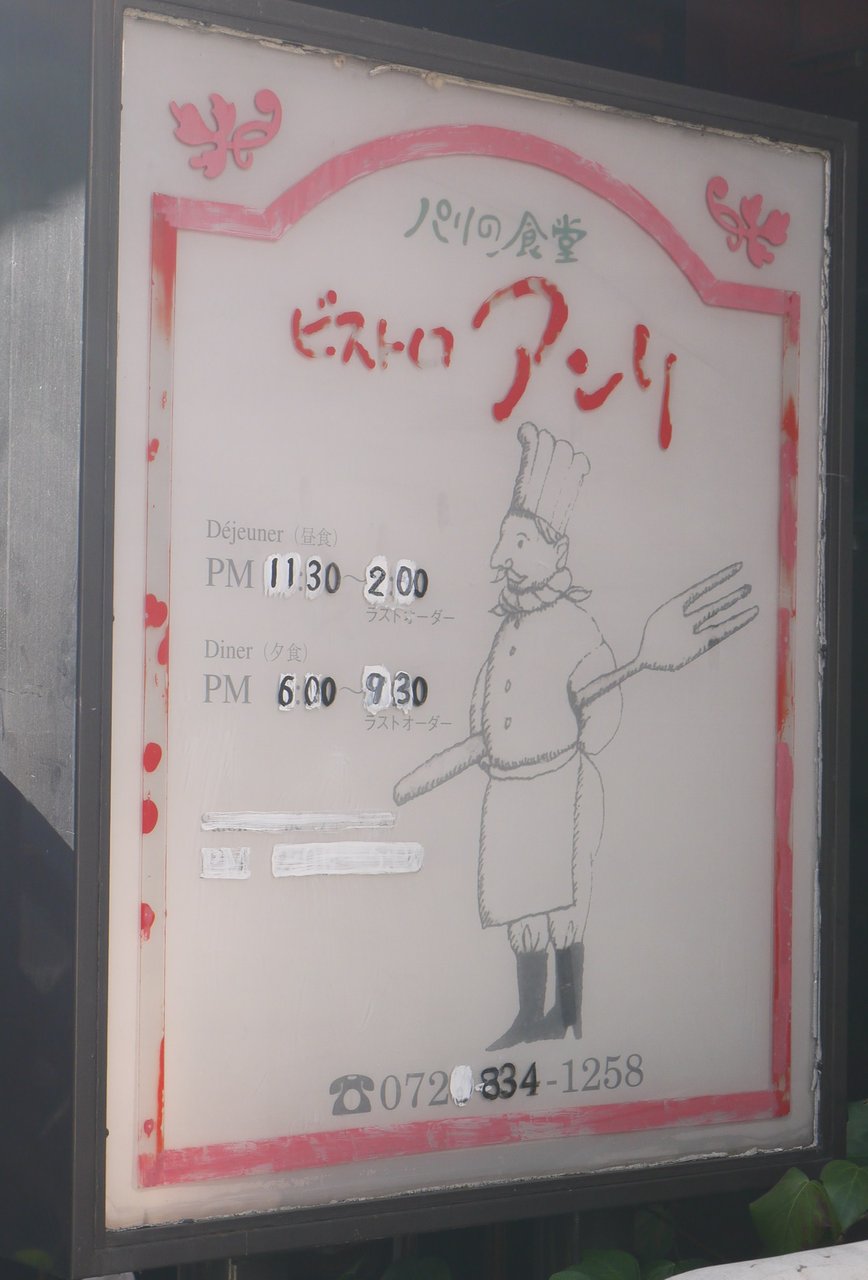 パリの食堂
ビストロ アンリ
Déjeuner (昼食)
PM 11:30~2:00
ラストオーダー
Diner (夕食)
PM 6:00~9:30
ラストオーダー
PM
☎072-834-1258